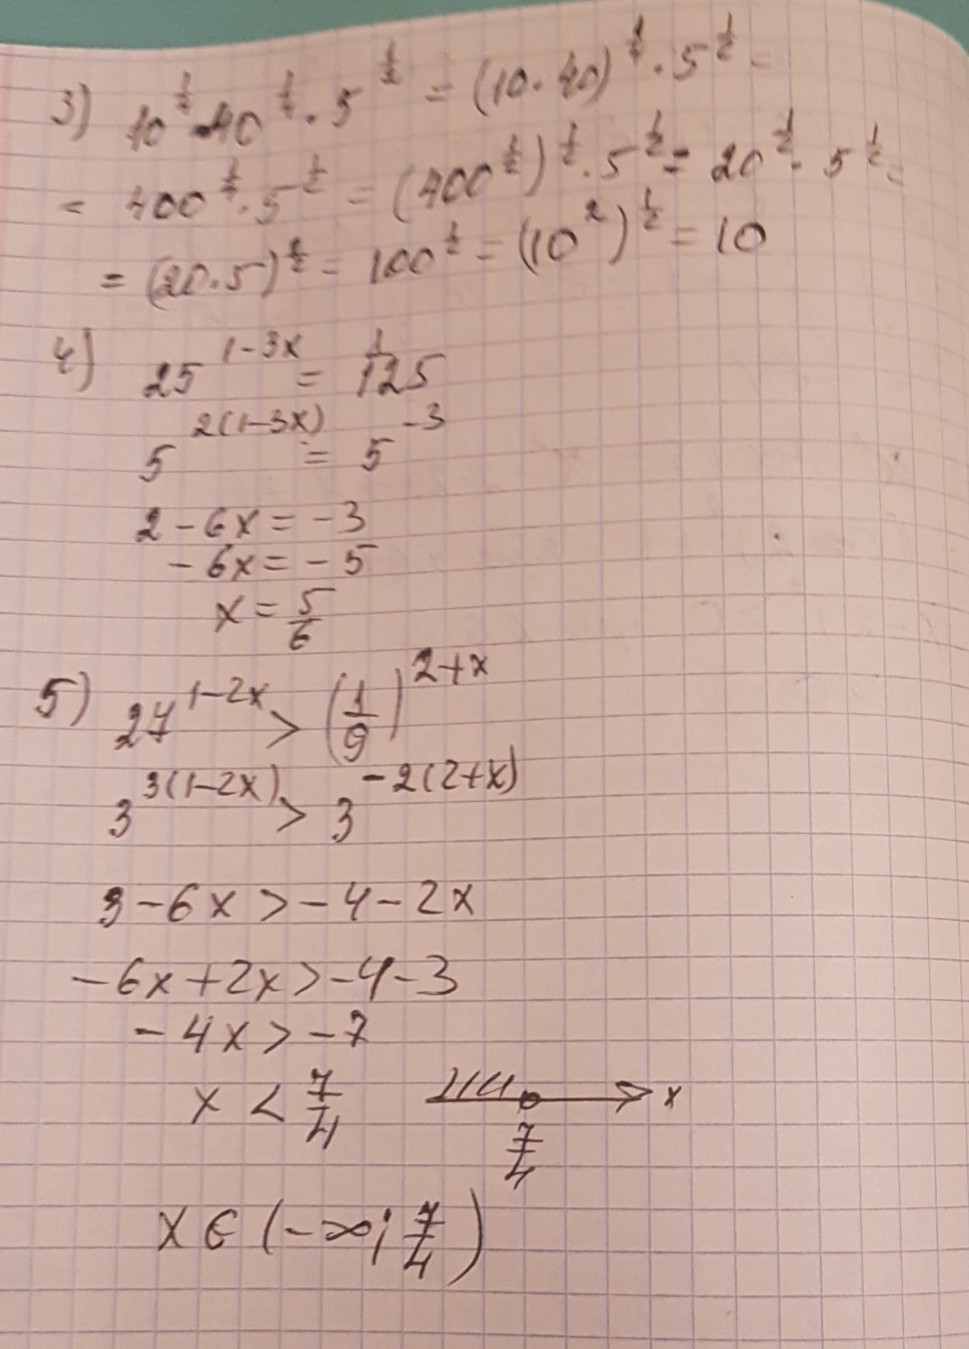 3) 10^{1/4} · 40^{1/4} · 5^{1/2} = (10·40)^{1/4} · 5^{1/2} =
= 400^{1/4} · 5^{1/2} = (400^{1/2})^{1/2} · 5^{1/2} = 20^{1/2} · 5^{1/2} =
= (20·5)^{1/2} = 100^{1/2} = (10^2)^{1/2} = 10
4) 25^{1-3x} = 1/125
5^{2(1-3x)} = 5^{-3}
2 - 6x = -3
-6x = -5
x = 5/6
5) 27^{1-2x} > (1/9)^{2+x}
3^{3(1-2x)} > 3^{-2(2+x)}
3 - 6x > -4 - 2x
-6x + 2x > -4 - 3
-4x > -7
x < 7/4 x
7/4
x ∈ (-∞; 7/4)